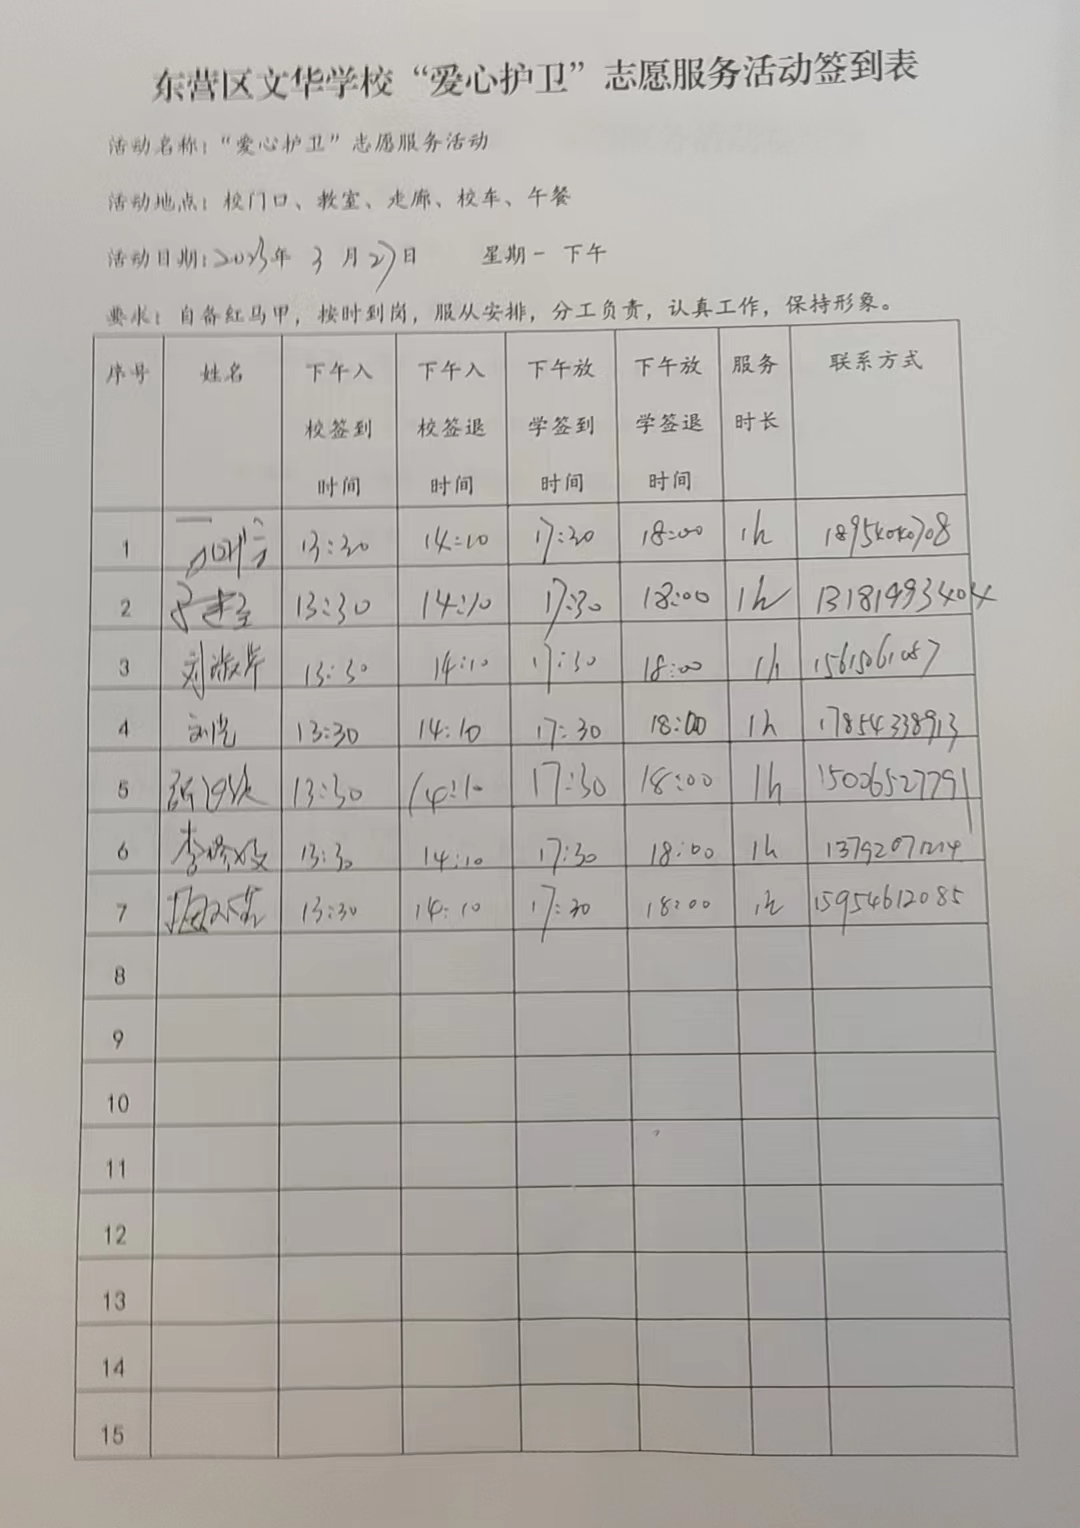 东营区文华学校“爱心护卫”志愿服务活动签到表
活动名称：“爱心护卫”志愿服务活动
活动地点：校门口、教室、走廊、校车、午餐
活动日期：2023年 3 月 27 日 星期一 下午
要求：自备红马甲，按时到岗，服从安排，分工负责，认真工作，保持形象。
序号 姓名 下午入校签到时间 下午入校签退时间 下午放学签到时间 下午放学签退时间 服务时长 联系方式
1 13:30 14:10 17:30 18:00 1h 18954040708
2 13:30 14:10 17:30 18:00 1h 13181993404
3 刘淑芹 13:30 14:10 17:30 18:00 1h 15615061087
4 刘光 13:30 14:10 17:30 18:00 1h 17854338913
5 13:30 14:10 17:30 18:00 1h 15006527791
6 13:30 14:10 17:30 18:00 1h
7 13:30 14:10 17:30 18:00 1h 15954612085
8
9
10
11
12
13
14
15